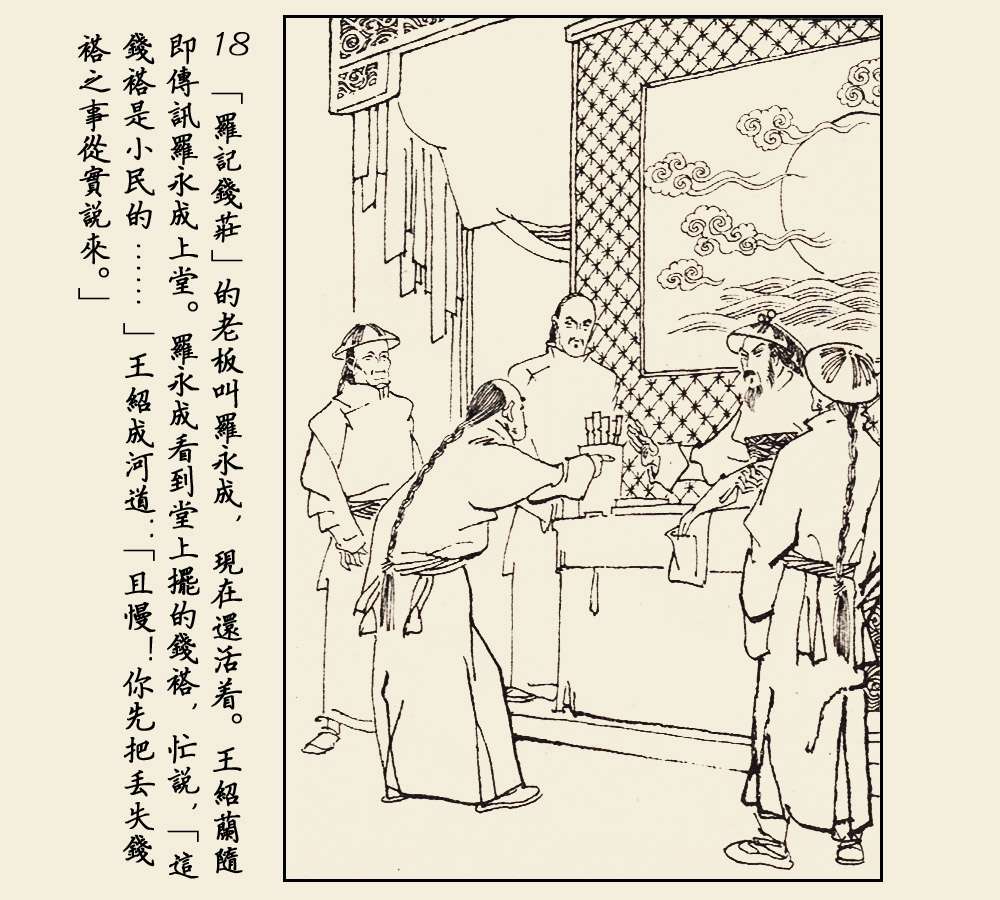 18
「羅記錢莊」的老板叫羅永成，現在還活着。王紹蘭隨
即傳訊羅永成上堂。羅永成看到堂上擺的錢褡，忙説，「這
錢褡是小民的……」王紹成河道：「且慢！你先把丢失錢
褡之事從實説來。」